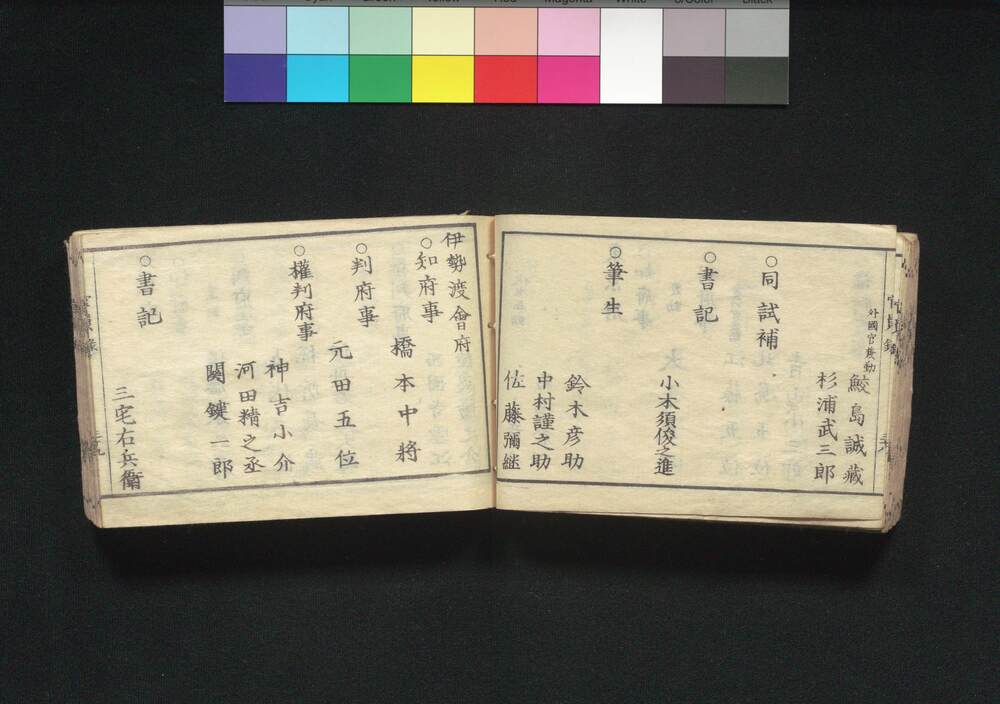 外國官兼勤
鮫島誠藏
杉浦武三郎
○同試補
○書記
小木須俊之進
○筆生
鈴木彦助
中村謹之助
佐藤彌継
伊勢渡會府
○知府事
橋本中將
○判府事
元田五位
○權判府事
神吉小介
河田精之丞
關鍵一郎
○書記
三宅右兵衛